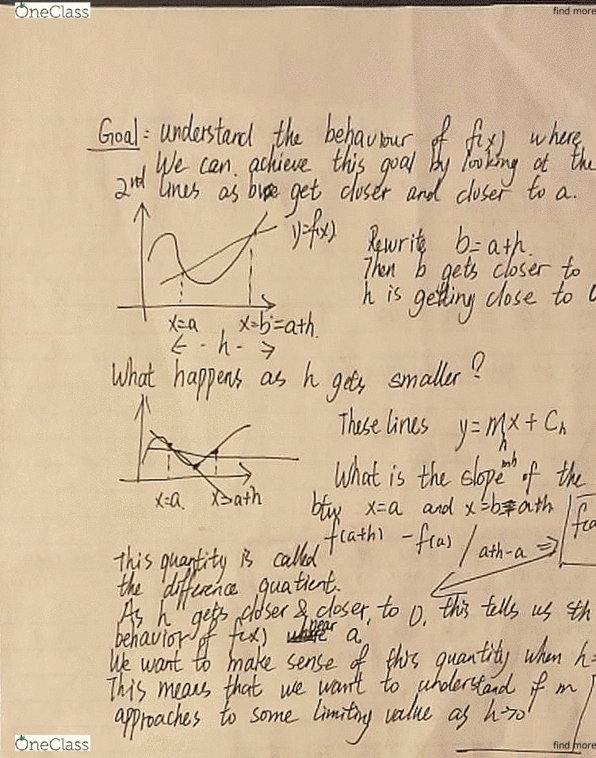 OneClass
find more
Goal: understand the behaviour of f(x) where
We can achieve this goal by looking at the
2nd lines as b get closer and closer to a.
y=f(x)
Rewrite b=a+h.
Then b gets closer to
h is getting close to 0
x=a x=b=a+h.
h
What happens as h gets smaller?
These lines y=m_h x + C_h
What is the slope mh of the
x=a. x=a+h
btw x=a and x=b=a+h
f(a+h) - f(a) / a+h-a ⇒ f(a
This quantity is called
the difference quatient.
As h gets closer & closer, to 0, this tells us sth
behavior of f(x) near a.
We want to make sense of this quantity when h=
This means that we want to understand if m
approaches to some limiting value as h→0
OneClass
find more